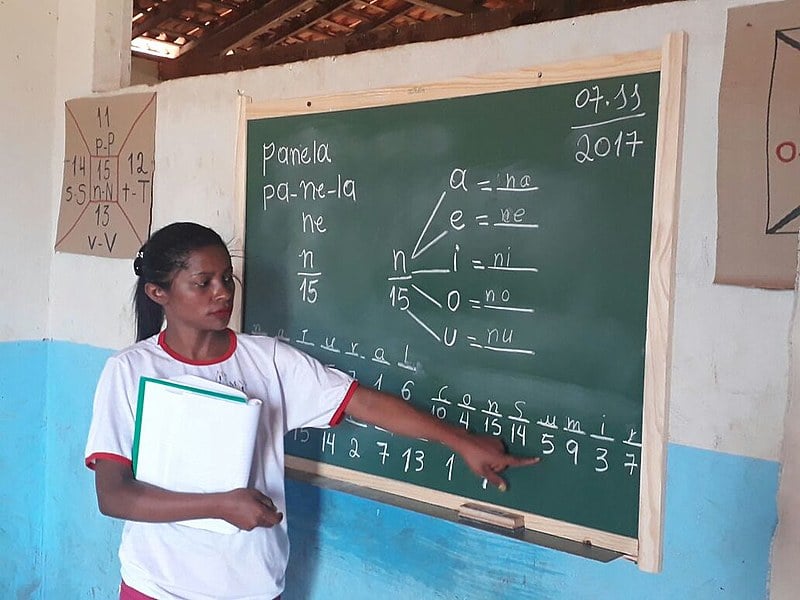 11
p-p
14 15 12
s-S n-N t-T
13
v-V
panela
pa-ne-la
ne
n
15
07.11
2017
a = na
e = ne
n i = ni
15 o = no
u = nu
n a t u r a l
1 6
c o n s u m i r
10 4 15 14 5 9 3 7
15 14 2 7 13 1